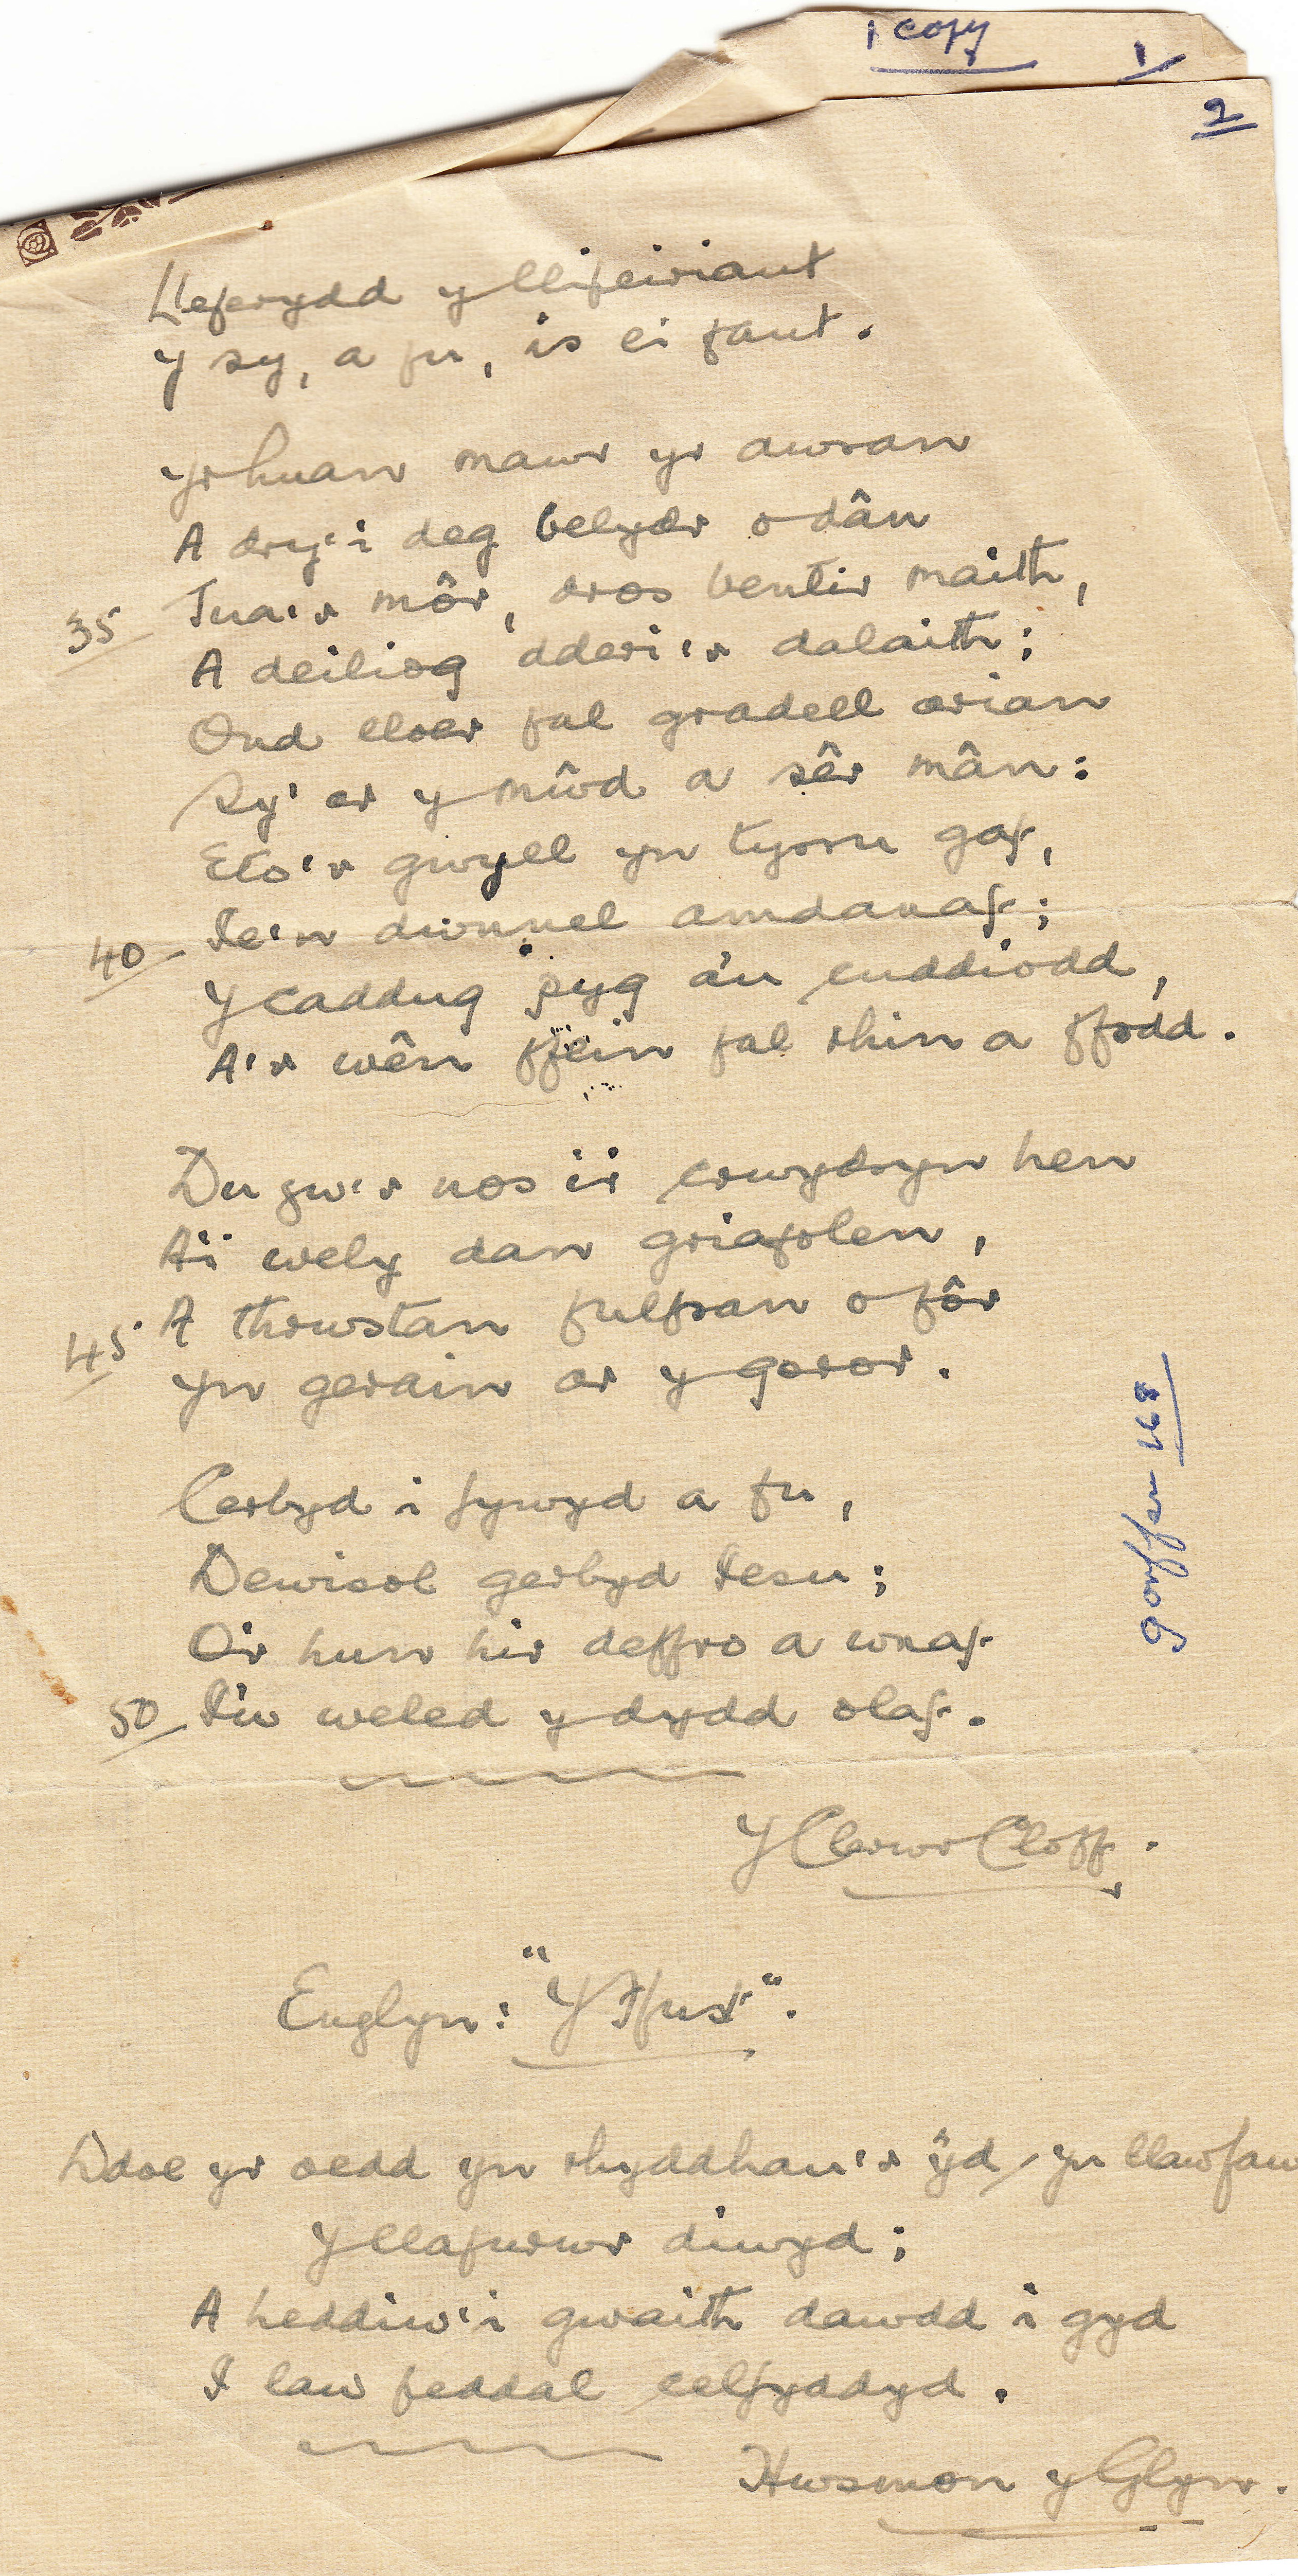 1 copy
1
2
Lleferydd y llifeiriant
Y sy, a fu, is ei fant.
Yr huan mawr yr awran
A dry'i deg belydr o dân
Tua'r môr, dros bentir maith,
35 A deiliog dderi'r dalaith;
Ond lloer fal gradell arian
Sy' ar y nûd a sêr mân:
Eto'r gwyll yn tyrru gaf,
40 Ie'n dwnnel amdanaf;
Y caddug pyg a'u cuddiodd,
A'r wên ffein fal rhin a ffodd.
Du yw'r nos i'r crwydryn hen
A'i wely dan griafolen,
45 A thrwstan fulfran o fôr
Yn gerain ar y goror.
Cerbyd i fywyd a fu,
Dewisol gerbyd Iesu;
O'r hun hir deffro a wnaf
50 I'w weled y dydd olaf.
Y Clerwr Cloff.
Englyn: "Y Ffust".
Ddoe yr oedd yn rhyddhau'r ŷd / yn llaw fau
Y llafurwr diwyd;
A heddiw'i gwaith dawdd i gyd
I law feddal celfyddyd.
Hwsmon y Glyn.